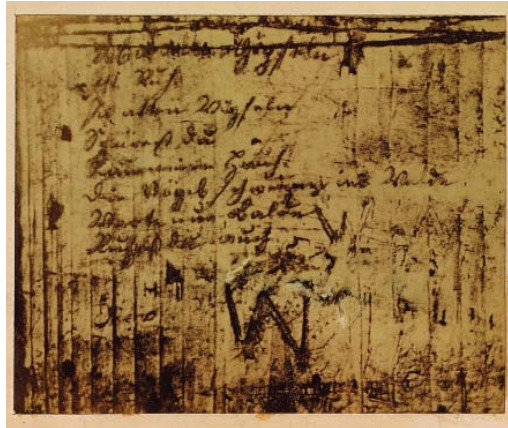 Über allen Gipfeln
Ist Ruh
In allen Wipfeln
Spürest du
Kaum einen Hauch.
Die Vögel schweigen im Walde
Warte nur balde
Ruhest du auch
W